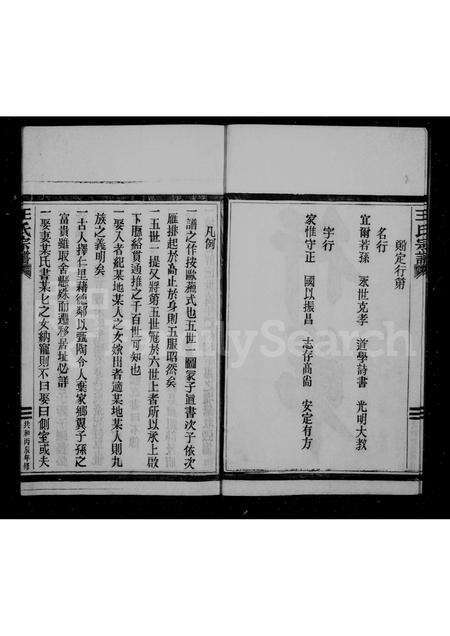 王氏宗譜
頒定行第
名行
宜爾若孫 永世克孝 道學詩書 光明大教
字行
家惟守正 國以振昌 志存高尚 安定有方
凡例
一譜之作按歐蘇式也五世一圖冢子直書次子依次
雁排起於高止於身則五服昭然矣
一五世一提又將第五世冠於六世上者所以承上啟
下脈絡貫通推之千百世可知也
一娶入者紀某地某人之女嫁出者適某地某人則九
族之義明矣
一古人擇仁里藉德鄰以豔閥令人棄家鄉翼子孫之
富貴雖取舍懸殊而遷移居址必詳
一娶妻某氏書某七之女納寵則不曰娶曰側室或夫
王氏宗譜
共和丙辰年修
FamilySearch